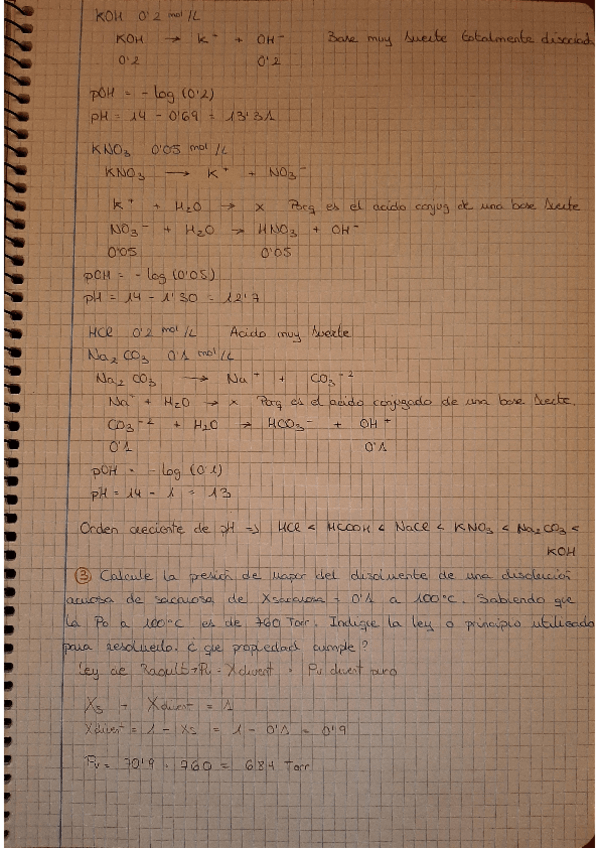 KOH 0'2 mol/L
KOH → K⁻ + OH⁻ Base muy fuerte totalmente disociada
0'2 0'2
pOH = - log (0'2)
pH = 14 - 0'69 = 13'31
KNO₃ 0'05 mol/L
KNO₃ → K⁺ + NO₃⁻
K⁺ + H₂O → x Porq es el acido conjug de una base fuerte
NO₃⁻ + H₂O → HNO₃ + OH⁻
0'05 0'05
pOH = - log (0'05)
pH = 14 - 1'30 = 12'7
HCl 0'2 mol/L Acido muy fuerte
Na₂CO₃ 0'1 mol/L
Na₂CO₃ → Na⁺ + CO₃⁻²
Na⁺ + H₂O → x Porq es el acido conjugado de una base fuerte.
CO₃⁻² + H₂O → HCO₃⁻ + OH⁺
0'1 0'1
pOH = - log (0'1)
pH = 14 - 1 = 13
Orden creciente de pH => HCl < HCOOH < NaCl < KNO₃ < Na₂CO₃ <
KOH
③ Calcule la presión de vapor del disolvente de una disolución
acuosa de sacarosa de Xsacarosa = 0'1 a 100°C. Sabiendo que
la Po a 100°C es de 760 Torr. Indique la ley o principio utilizado
para resolverlo. ¿ que propiedad cumple?
Ley de Raoult → Pv = Xdisvent · Pv disvent puro
Xs + Xdisvent = 1
Xdisvent = 1 - Xs = 1 - 0'1 = 0'9
Pv = 70'9 · 760 = 684 Torr